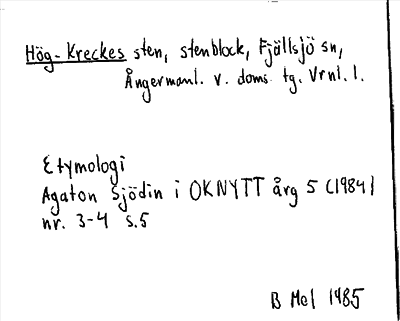 Hög-Kreckes sten, stenblock, Fjällsjö sn,
Ångermanl. v. doms tg. Vrnl. l.
Etymologi
Agaton Sjödin i OKNYTT årg 5 (1984)
nr. 3-4 s.5
B Mel 1985